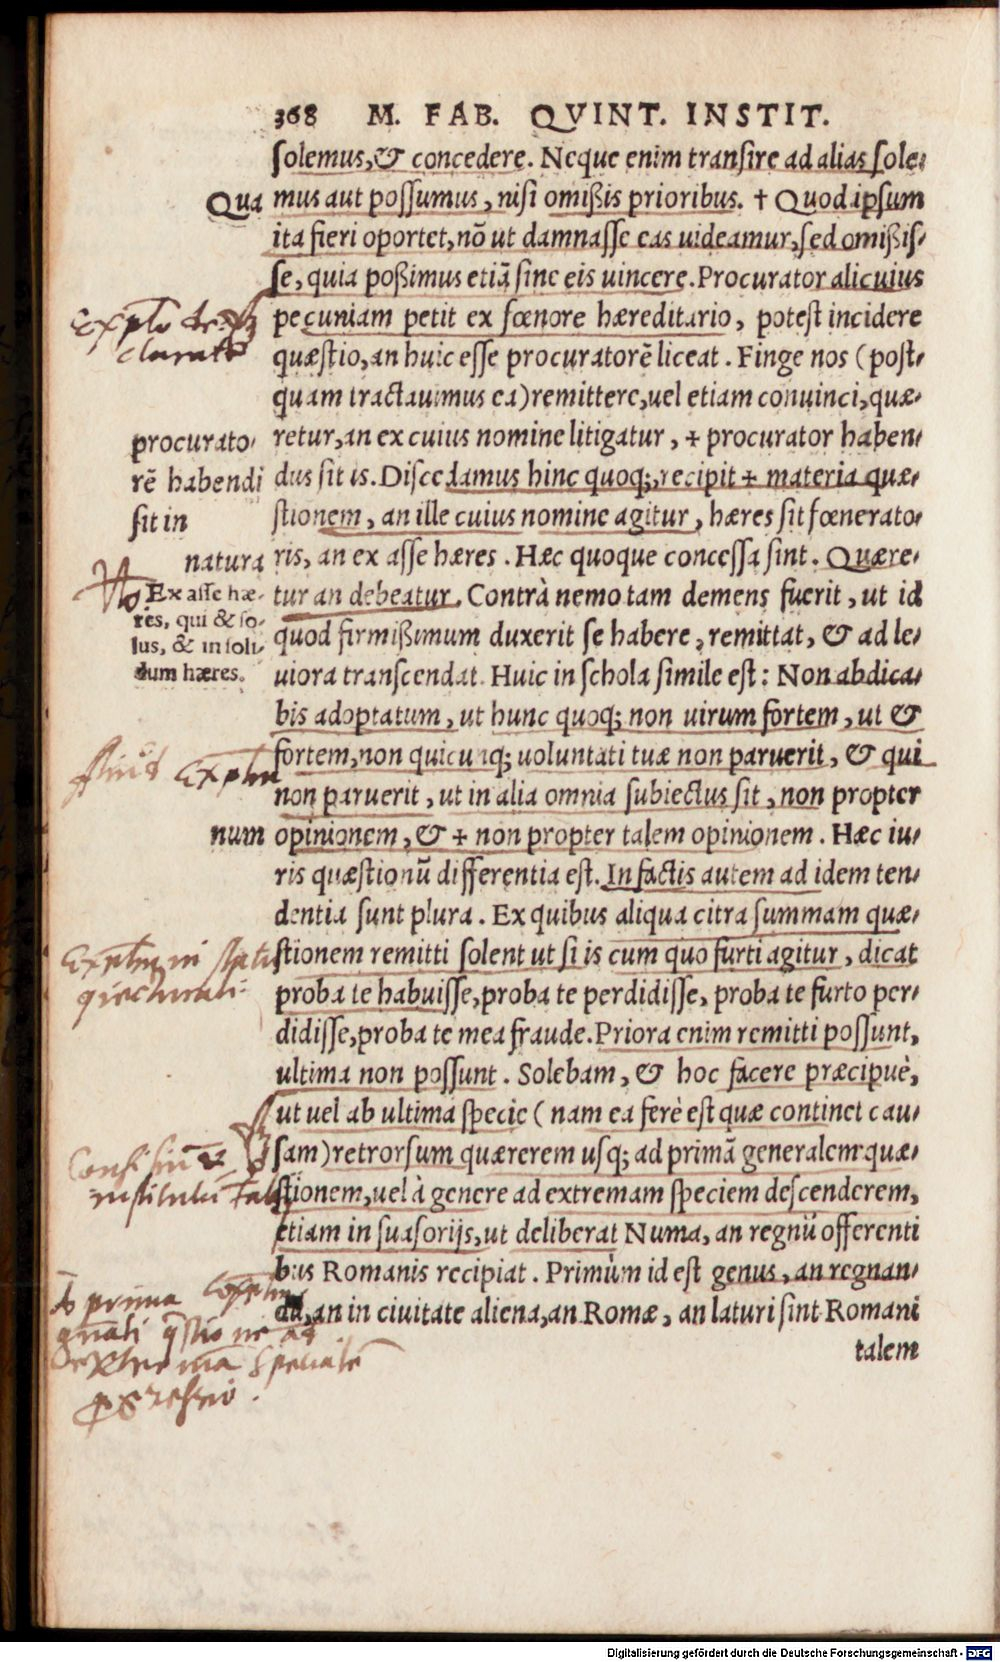 368 M. FAB. QVINT. INSTIT.
solemus, & concedere. Neque enim transire ad alias sole-
mus aut possumus, nisi omißis prioribus. † Quod ipsum
Qua
ita fieri oportet, nō ut damnasse eas uideamur, sed omißis-
se, quia poßimus etiā sine eis uincere. Procurator alicuius
pecuniam petit ex fœnore hæreditario, potest incidere
Explo
clarato
quæstio, an huic esse procuratorē liceat. Finge nos (post-
quam tractauimus ea) remittere, uel etiam conuinci, quæ-
retur, an ex cuius nomine litigatur, + procurator haben-
procurato-
rē habendi
sit in
natura
dus sit is. Discedamus hinc quoq;, recipit + materia quæ-
stionem, an ille cuius nomine agitur, hæres sit fœnerato-
ris, an ex asse hæres. Hæc quoque concessa sint. Quære-
Ex asse hæ-
res, qui & so-
lus, & in soli-
dum hæres.
tur an debeatur. Contrà nemo tam demens fuerit, ut id
quod firmißimum duxerit se habere, remittat, & ad le-
uiora transcendat. Huic in schola simile est: Non abdica-
bis adoptatum, ut hunc quoq; non uirum fortem, ut &
fortem, non quicunq; uoluntati tuæ non paruerit, & qui
non paruerit, ut in alia omnia subiectus sit, non propter
num
opinionem, & + non propter talem opinionem. Hæc iu-
ris quæstionū differentia est. In factis autem ad idem ten-
dentia sunt plura. Ex quibus aliqua citra summam quæ-
stionem remitti solent ut si is cum quo furti agitur, dicat
proba te habuisse, proba te perdidisse, proba te furto per-
didisse, proba te mea fraude. Priora enim remitti possunt,
ultima non possunt. Solebam, & hoc facere præcipuè,
ut uel ab ultima specie (nam ea ferè est quæ continet cau-
sam) retrorsum quærerem usq; ad primā generalem quæ-
stionem, uel à genere ad extremam speciem descenderem,
etiam in suasorijs, ut deliberat Numa, an regnū offerenti
bus Romanis recipiat. Primùm id est genus, an regnan-
dū, an in ciuitate aliena, an Romæ, an laturi sint Romani
prima
talem